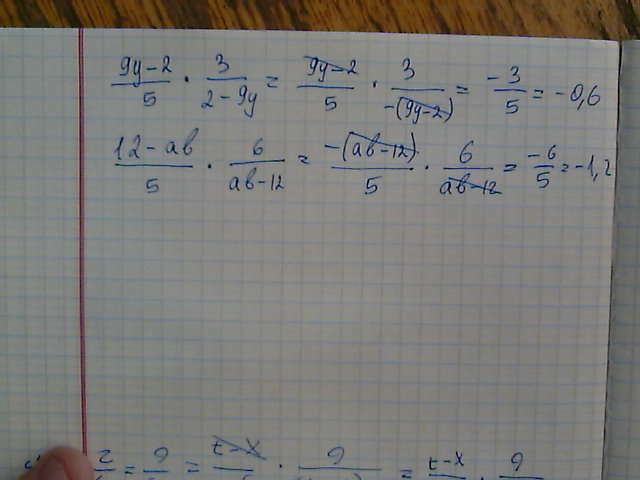 (9y-2)/5 · 3/(2-9y) = (9y-2)/5 · 3/(-(9y-2)) = -3/5 = -0,6
(12-ab)/5 · 6/(ab-12) = (-(ab-12))/5 · 6/(ab-12) = -6/5 = -1,2